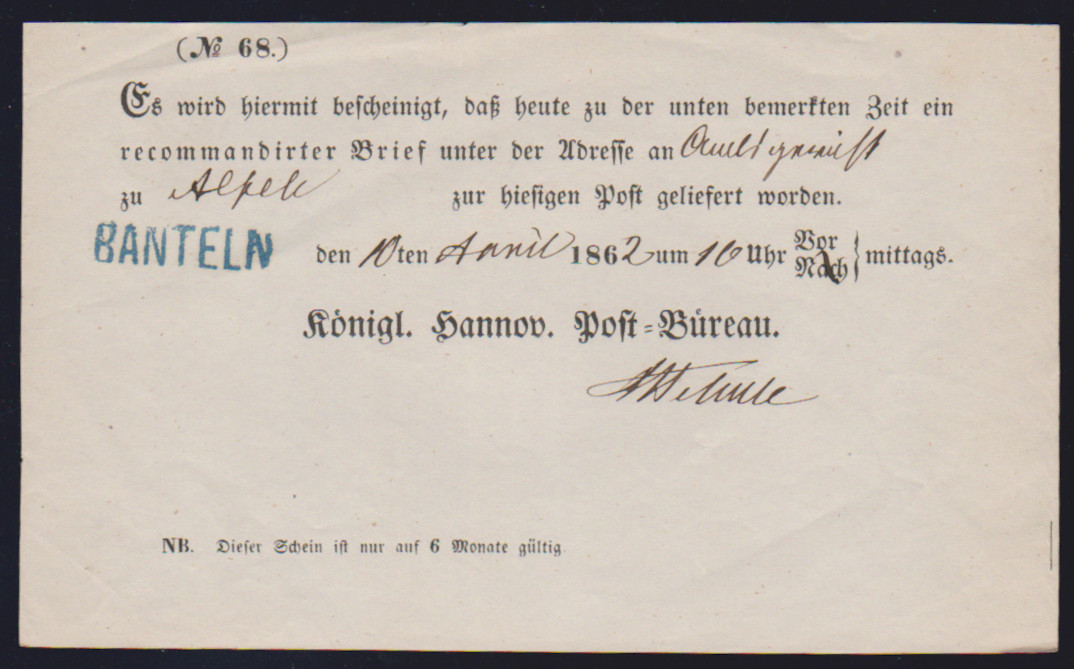 (№ 68.)
Es wird hiermit bescheinigt, daß heute zu der unten bemerkten Zeit ein
recommandirter Brief unter der Adresse an Amtsgericht
zu zur hiesigen Post geliefert worden.
BANTELN den 10ten April 1862 um 10 Uhr Vor Nach } mittags.
Königl. Hannov. Post-Büreau.
NB. Dieser Schein ist nur auf 6 Monate gültig